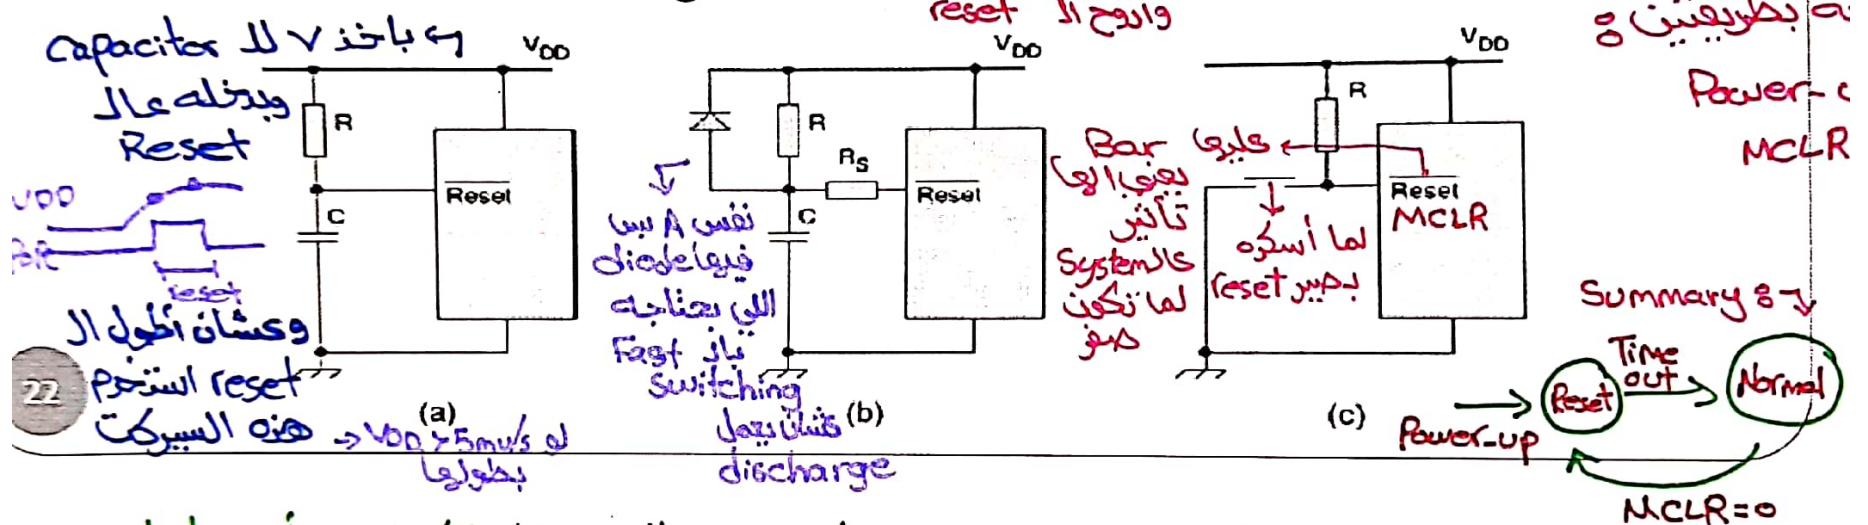 reset واروح الـ
بطريقتين :
Power-
MCLR
↩ باخذ V للـ capacitor
وبدخله عالـ
Reset
VDD
reset
وعشان أطول الـ
reset استخدم
هذه السيركت
22
VDD
R
C
Reset
(a)
→ VDD > 5mv/s لو
بطولها
VDD
R
RS
C
Reset
(b)
نفس A بس
فيها diode
اللي بحتاجه
Fast
switching
عشان يعمل
discharge
VDD
R
Reset
MCLR
(c)
عليها Bar
يعني إلها
تأثير
عالـ System
لما تكون
صفر
لما أسكره
بصير reset
Summary :
Power-up
Reset
Time
out
Normal
MCLR=0